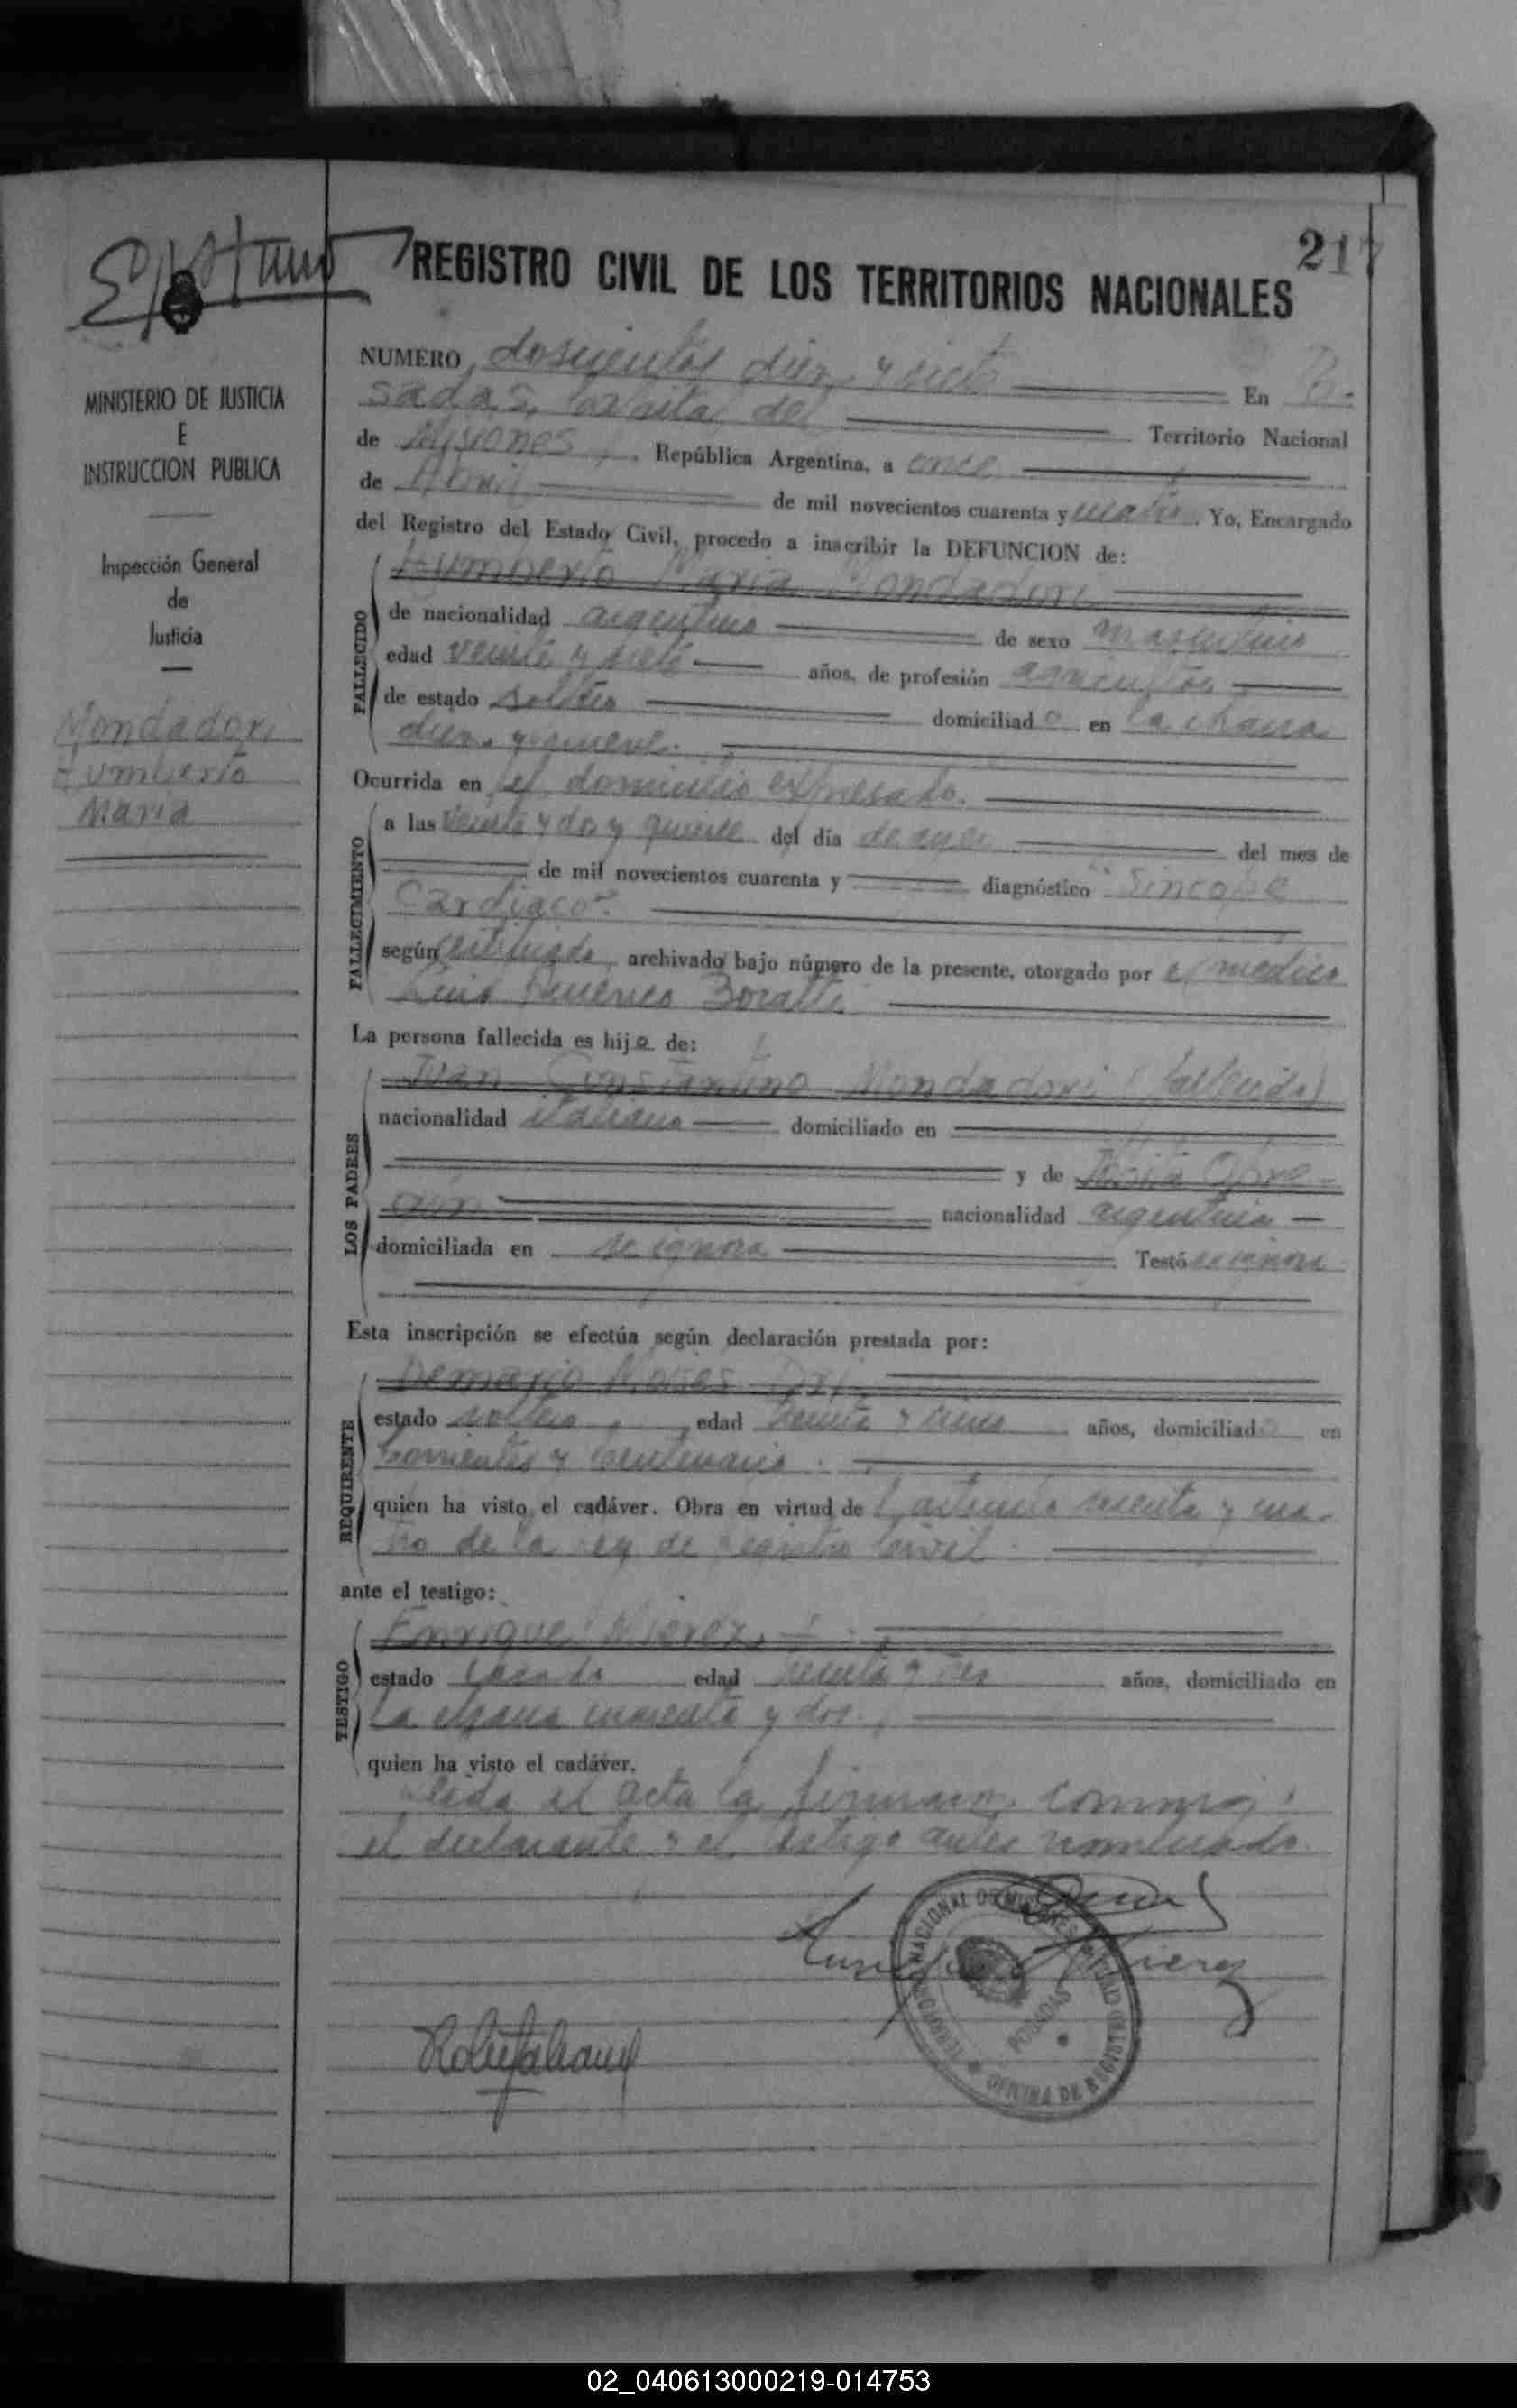 217
REGISTRO CIVIL DE LOS TERRITORIOS NACIONALES
MINISTERIO DE JUSTICIA
E
INSTRUCCION PUBLICA
Inspección General
de
Justicia
Mondadori
Humberto
Maria
NUMERO doscientos diez y siete En Po-
sadas, Capital del Territorio Nacional
de Misiones, República Argentina, a once
de Abril de mil novecientos cuarenta y cuatro. Yo, Encargado
del Registro del Estado Civil, procedo a inscribir la DEFUNCION de:
Humberto Maria Mondadori
FALLECIDO
de nacionalidad argentino de sexo masculino
edad veinte y siete años, de profesión agricultor
de estado soltero domiciliado en la chacra
diez y nueve.
Ocurrida en el domicilio expresado.
FALLECIMIENTO
a las veinte y dos y quince del día de ayer del mes de
de mil novecientos cuarenta y diagnóstico "Sincope
Cardiaco".
según certificado archivado bajo número de la presente, otorgado por el médico
Luis
La persona fallecida es hijo de:
LOS PADRES
Juan Constantino Mondadori (fallecido)
nacionalidad italiano domiciliado en
y de
nacionalidad argentina
domiciliada en se ignora Testó
Esta inscripción se efectúa según declaración prestada por:
REQUIRENTE
estado soltero, edad años, domiciliado en
Corrientes y Centenario.
quien ha visto el cadáver. Obra en virtud de l articulo sesenta y cua-
tro de la ley de registro Civil.
ante el testigo:
TESTIGO
Enrique
estado casado edad años, domiciliado en
la chacra cuarenta y dos.
quien ha visto el cadáver.
Leida el acta la firmaron conmigo
el declarante y el testigo antes nombrado.
TERRITORIO NACIONAL DE MISIONES
POSADAS
OFICINA DE REGISTRO CIVIL
02_040613000219-014753